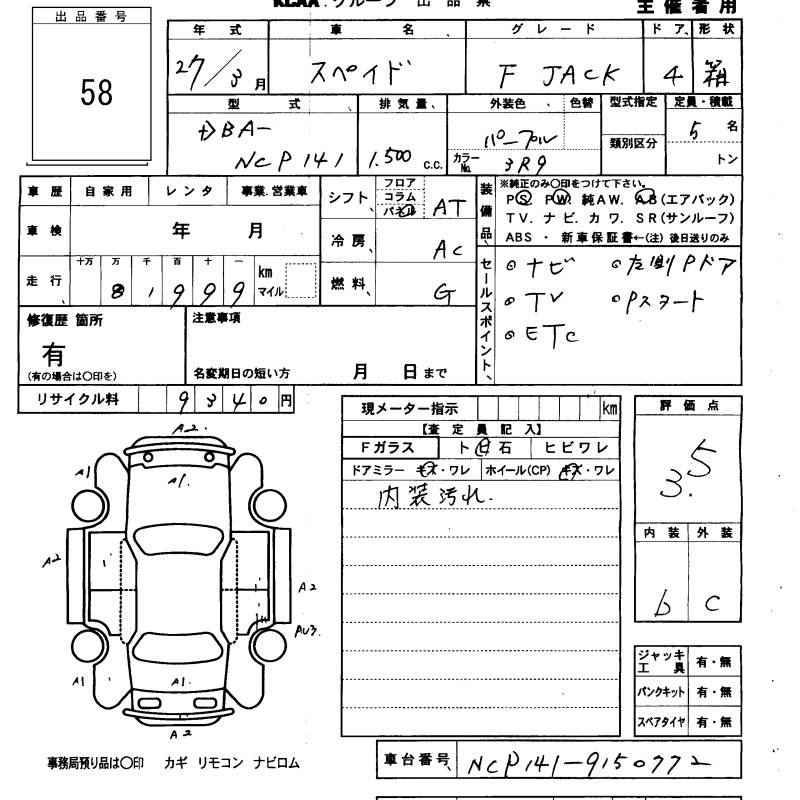 KCAA.グループ 出 品 票
主催者用
出品番号
58
年 式 車 名 グレード ドア 形 状
27/3月 スペイド F JACK 4 箱
型 式 排気量 外装色 色替 型式指定 定員・積載
DBA- NCP141 1.500 c.c. パープル 5 名
カラーNo. 3R9 類別区分 トン
車 歴 自家用 レンタ 事業.営業車
シフト フロア コラム パネル AT
装備品 ※純正のみ〇印をつけて下さい。
PS. PW. 純AW. AB(エアバック)
TV. ナビ. カワ. SR(サンルーフ)
ABS ・ 新車保証書←(注) 後日送りのみ
車 検 年 月
冷 房 AC
走 行 十万 万 千 百 十 一
8 1 9 9 9 km マイル
燃 料 G
セールスポイント
◦ナビ ◦左側Pドア
◦TV ◦Pスタート
◦ETC
修復歴 箇所
有
(有の場合は〇印を)
注意事項
名変期日の短い方 月 日まで
リサイクル料 9 3 4 0 円
現メーター指示 km
【査 定 員 記 入】
Fガラス ト 日 石 ヒビワレ
ドアミラー キズ・ワレ ホイール(CP) キズ・ワレ
内装汚れ.
評 価 点
3.5
内 装 外 装
b c
A2.
A1 A1. A1
A2 A2
AU3.
A1 A1. A1
A2
ジャッキ 工 具 有・無
パンクキット 有・無
スペアタイヤ 有・無
事務局預り品は〇印 カギ リモコン ナビロム
車台番号 NCP141-9150772